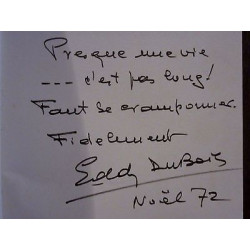 Presque une vie
--- c'est pas long!
Faut se cramponner.
Fidèlement
Eddy DuBois
Noël 72